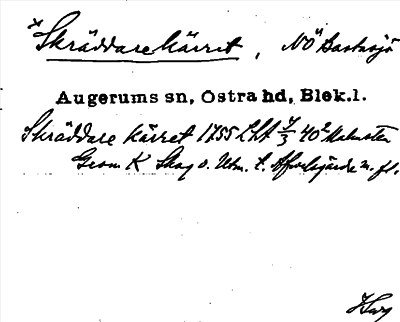 *Skräddarekärret, NÖ Bastasjö
Augerums sn, Östra hd, Blek.l.
Skräddare kärret 1755 LHA 7/3 40²
Grom K Skog o. Utm. t. Afvelsgärde m. fl.